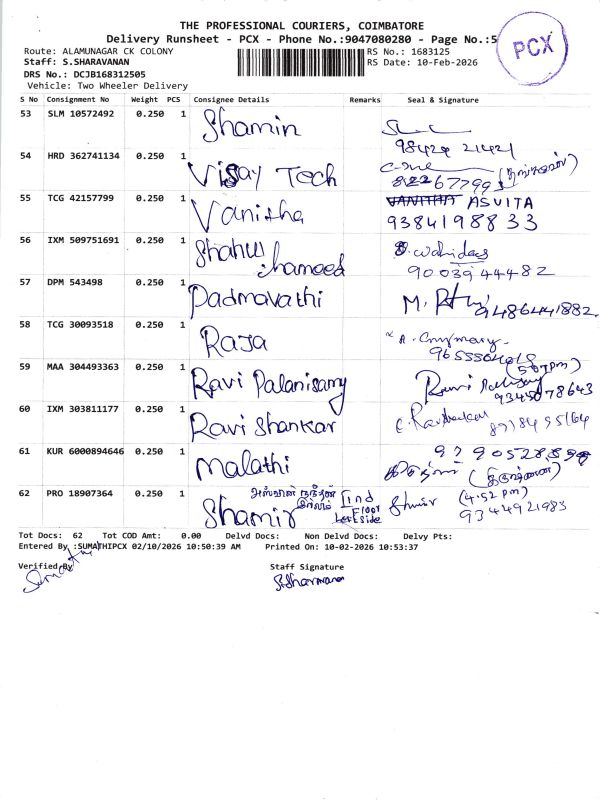 THE PROFESSIONAL COURIERS, COIMBATORE
Delivery Runsheet - PCX - Phone No.:9047080280 - Page No.:5
PCX
Route: ALAMUNAGAR CK COLONY
RS No.: 1683125
Staff: S.SHARAVANAN
RS Date: 10-Feb-2026
DRS No.: DCJB168312505
Vehicle: Two Wheeler Delivery
S No Consignment No Weight PCS Consignee Details Remarks Seal & Signature
53 SLM 10572492 0.250 1 Shamin
98429 21421
54 HRD 362741134 0.250 1 Vijay Tech
55 TCG 42157799 0.250 1 Vanitha VANITHA ASVITA
9384198833
56 IXM 509751691 0.250 1 Shahul hameed
9003944482
57 DPM 543498 0.250 1 Padmavathi
9486441882
58 TCG 30093518 0.250 1 RAJA
59 MAA 304493363 0.250 1 Ravi Palanisamy
(5:07pm)
9345078643
60 IXM 303811177 0.250 1 Ravi Shankar
61 KUR 6000894646 0.250 1 Malathi
62 PRO 18907364 0.250 1 Shamir
IInd Floor Left side
(4:52 pm)
9344921983
Tot Docs: 62 Tot COD Amt: 0.00 Delvd Docs: Non Delvd Docs: Delvy Pts:
Entered By :SUMATHIPCX 02/10/2026 10:50:39 AM Printed On: 10-02-2026 10:53:37
Verified By
Staff Signature
S.Sharavana